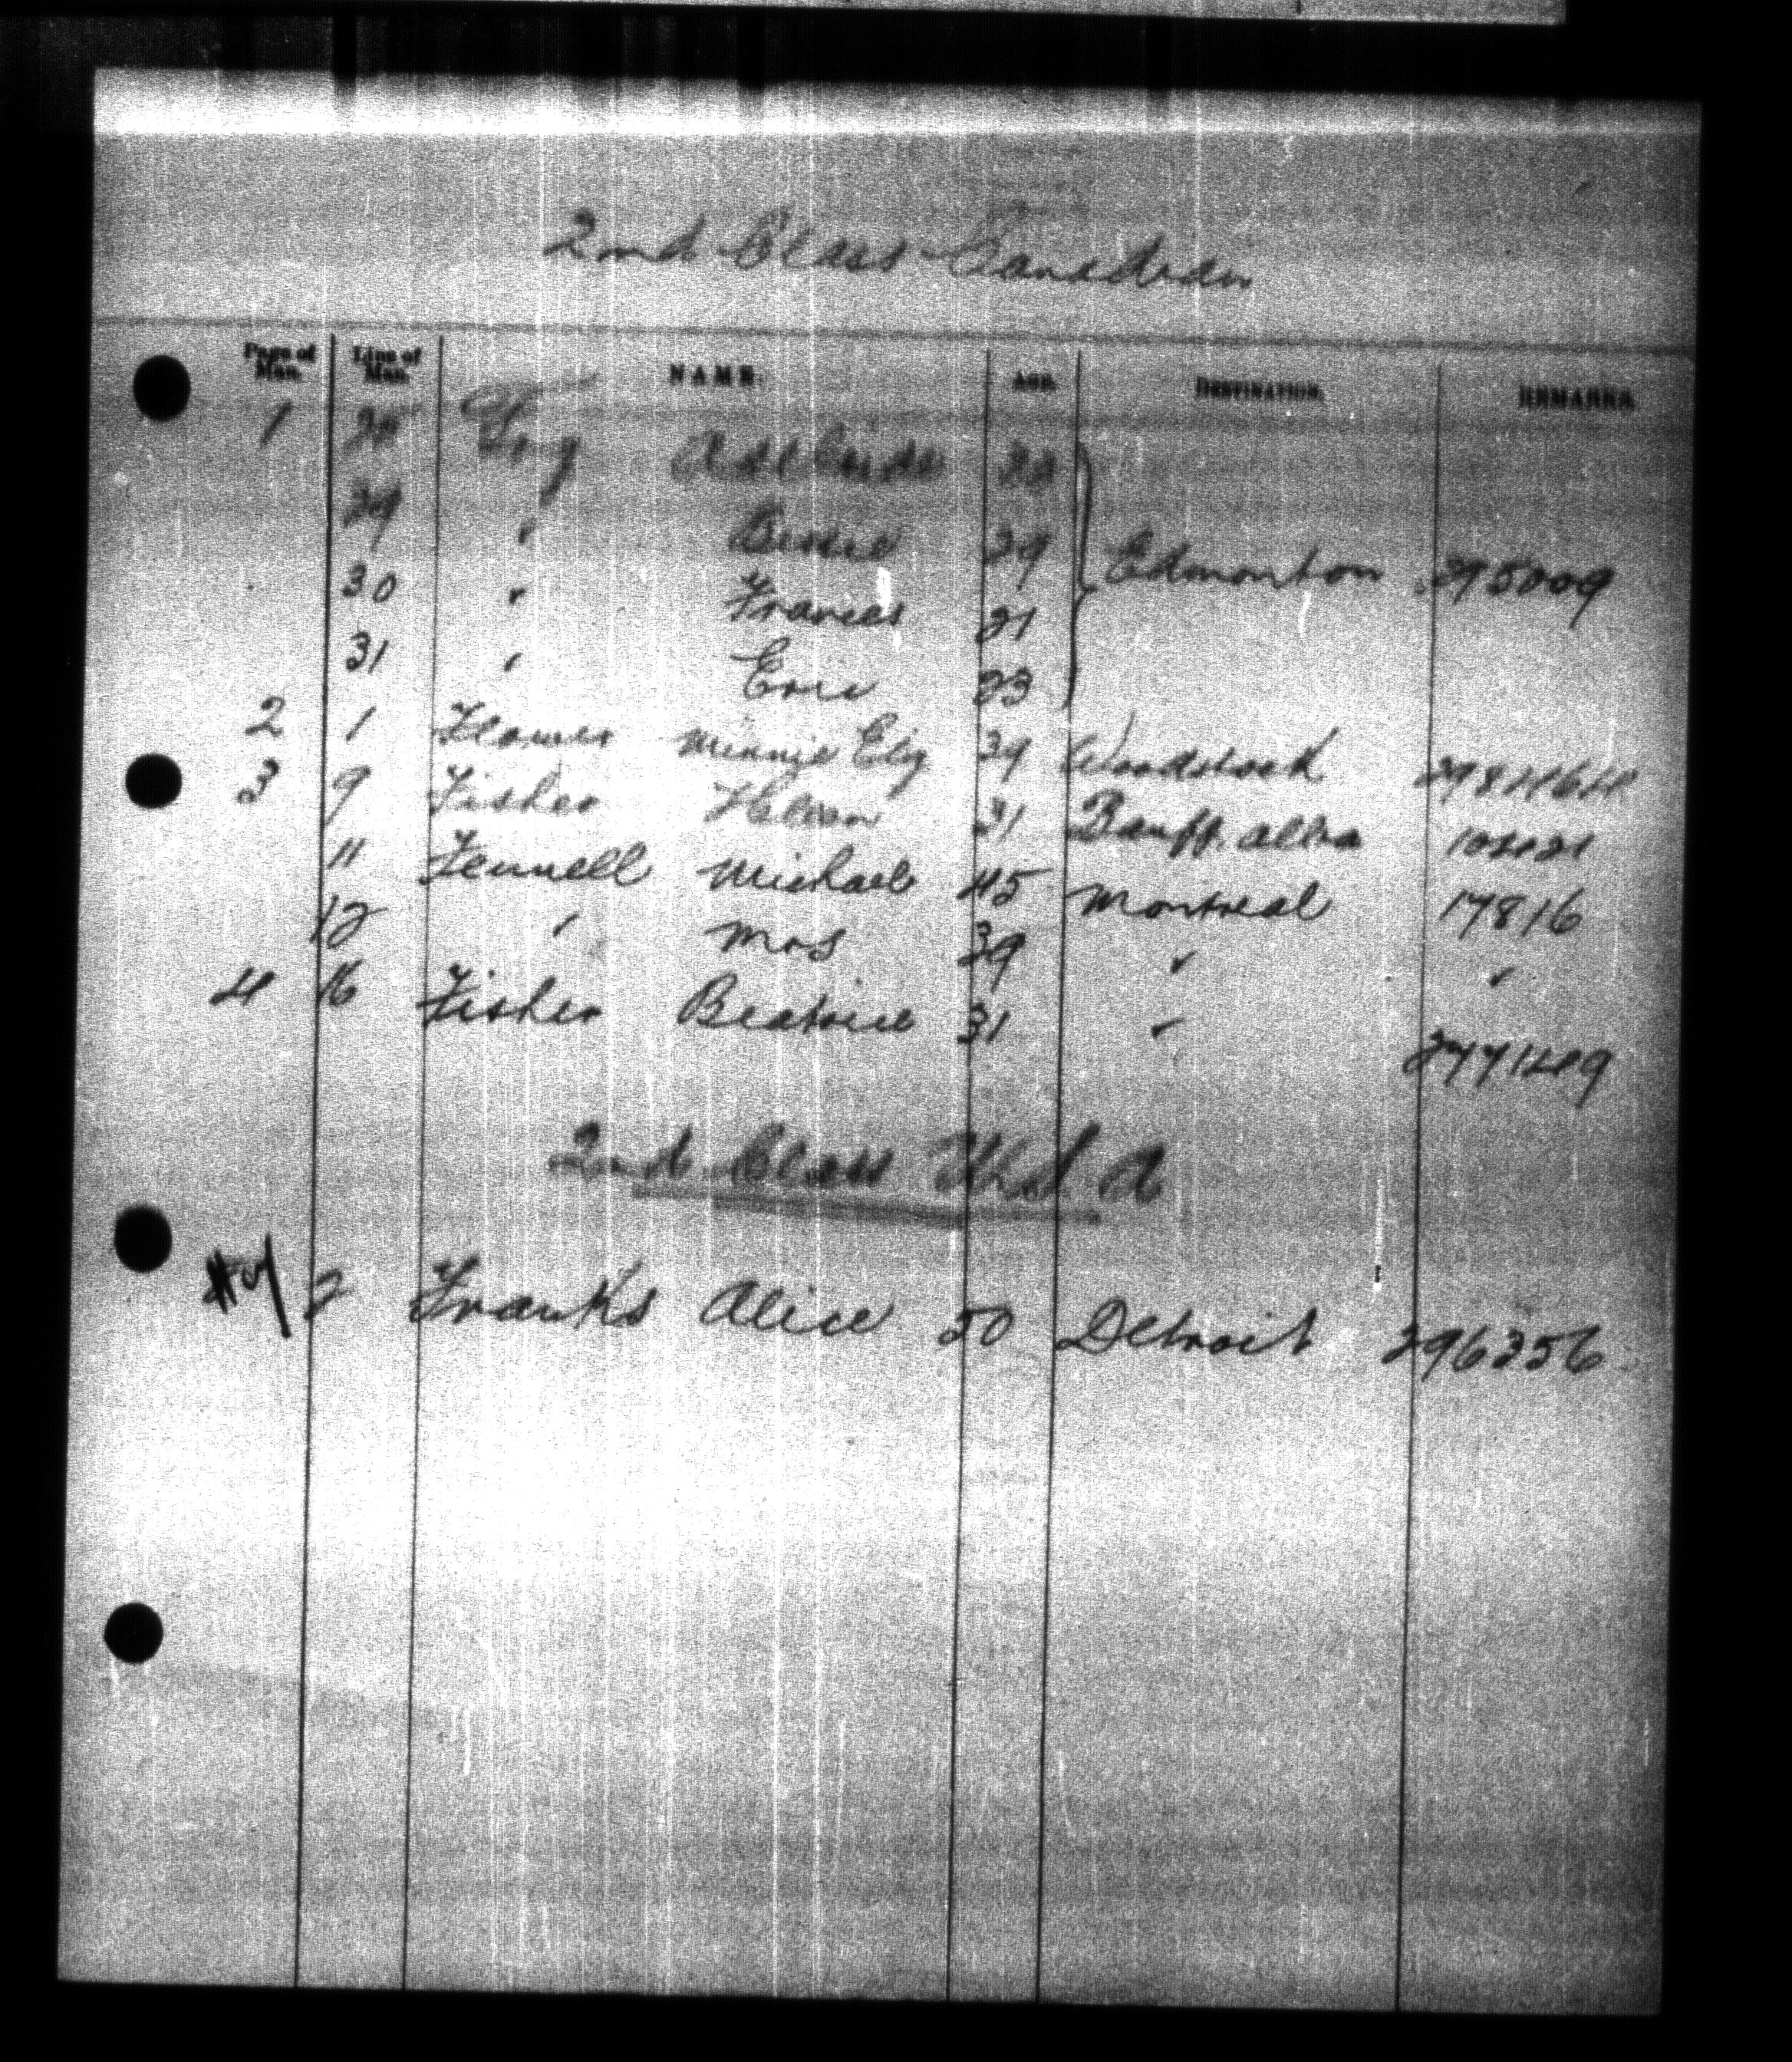 2nd Class Canadian
Page of Man. Line of Man. NAME. AGE. DESTINATION. REMARKS.
1 28 Fry Adelaide
29 " Bessie 29 Edmonton 295009
30 " Frances 21
31 " Eric 23
2 1 Flower Minnie Eliz 39 Woodstock
3 9 Fisher Helen 31 Banff. Alta
11 Fennell Michael 45 Montreal 17816
12 " Mrs 39 " "
4 16 Fisher Beatrice 31 " 277149
2nd Class U.S.A
2 Franks Alice 50 Detroit 296356